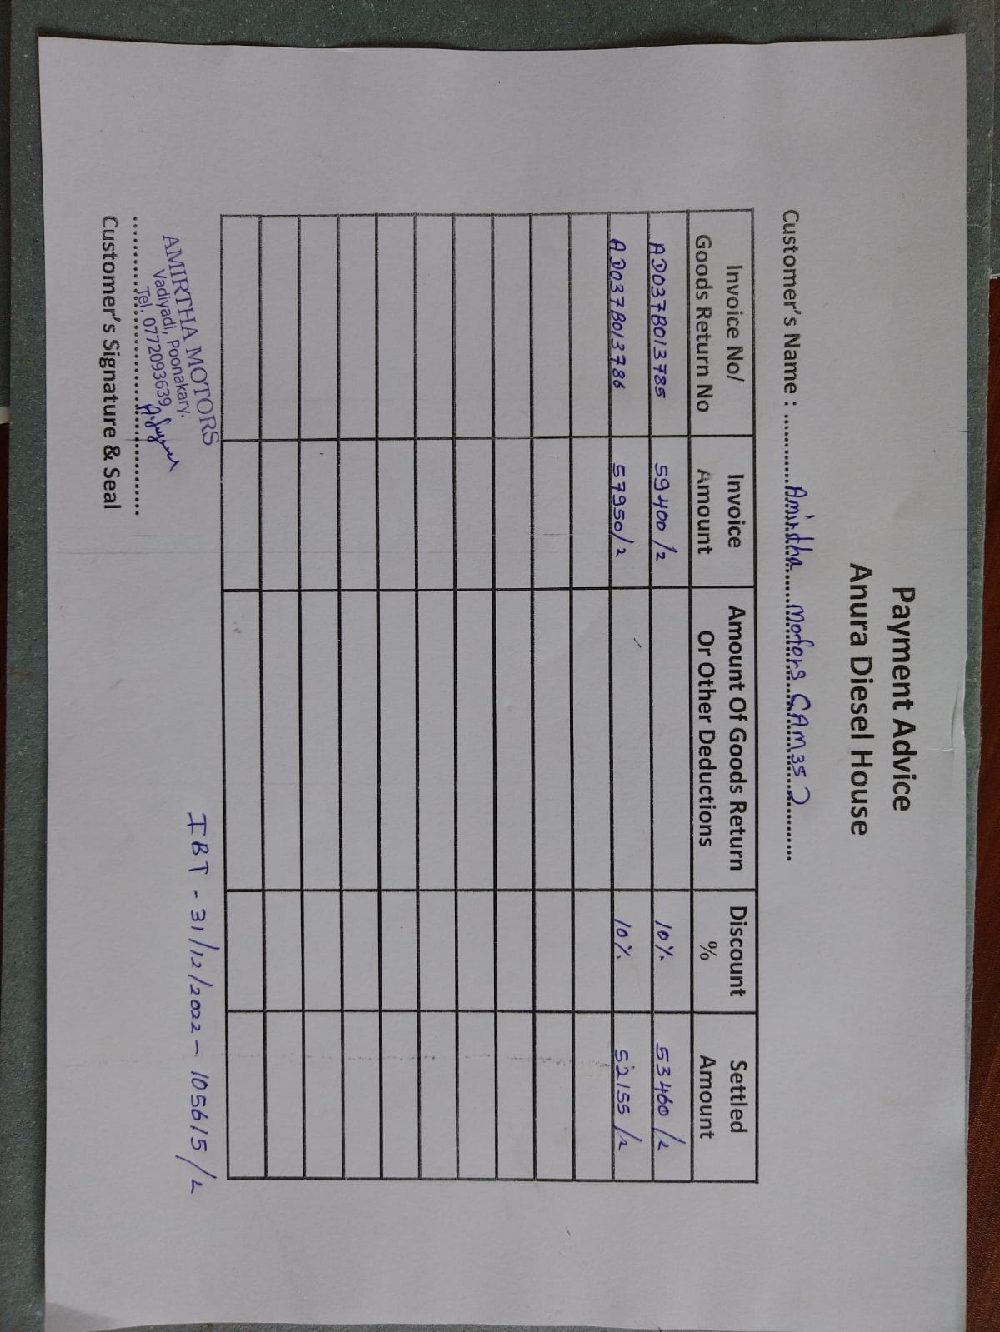 Payment Advice
Anura Diesel House
Customer's Name : Amirtha Motors CAM35
Invoice No/ Goods Return No | Invoice Amount | Amount Of Goods Return Or Other Deductions | Discount % | Settled Amount
AD037B013785 | 59400/2 | | 10% | 53460/2
AD037B013786 | 57950/2 | | 10% | 52155/2
IBT - 31/12/2022 - 105615/2
AMIRTHA MOTORS
Vadiyadi, Poonakary.
Tel. 0772093639
Customer's Signature & Seal